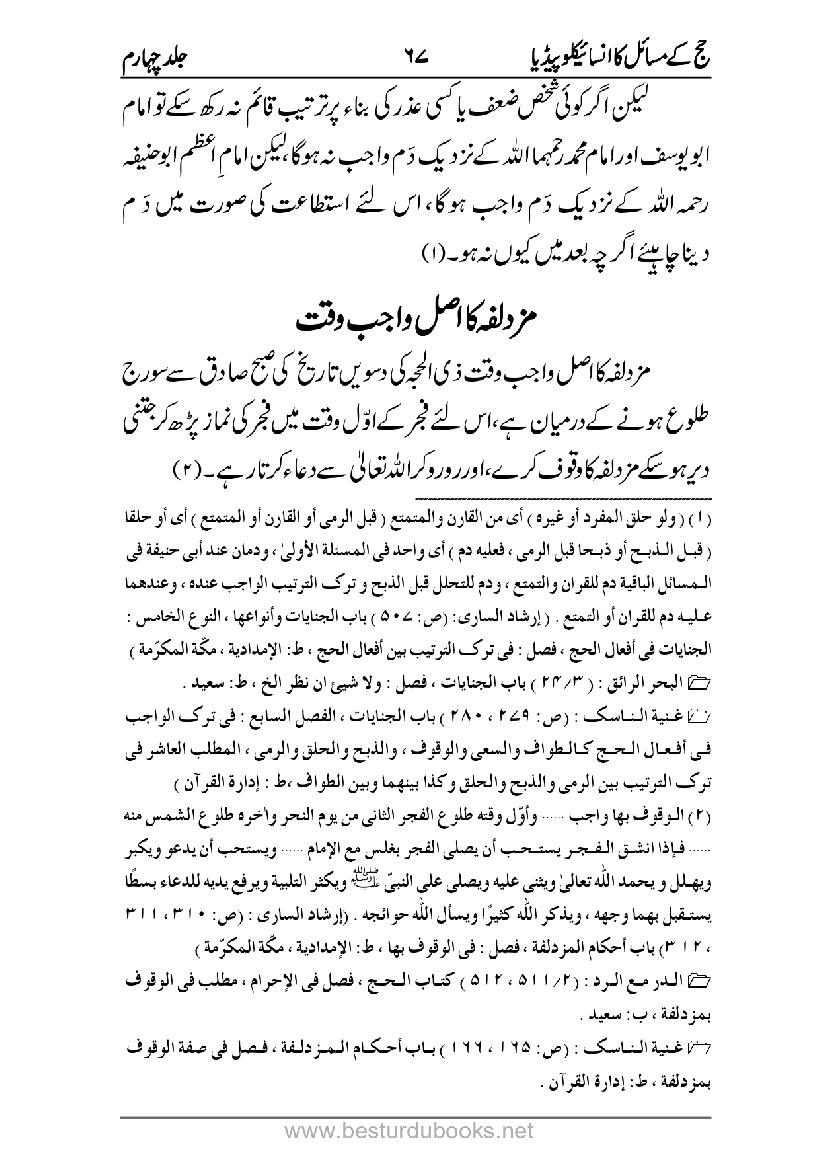 حج کے مسائل کا انسائیکلوپیڈیا ۶۷ جلد چہارم
لیکن اگر کوئی شخص ضعف یا کسی عذر کی بناء پر ترتیب قائم نہ رکھ سکے تو امام
ابو یوسف اور امام محمد رحمہما اللہ کے نزدیک دَم واجب نہ ہوگا، لیکن امامِ اعظم ابو حنیفہ
رحمہ اللہ کے نزدیک دَم واجب ہوگا، اس لئے استطاعت کی صورت میں دَم
دینا چاہیئے اگرچہ بعد میں کیوں نہ ہو۔(۱)
مزدلفہ کا اصل واجب وقت
مزدلفہ کا اصل واجب وقت ذی الحجہ کی دسویں تاریخ کی صبح صادق سے سورج
طلوع ہونے کے درمیان ہے، اس لئے فجر کے اوّل وقت میں فجر کی نماز پڑھ کر جتنی
دیر ہو سکے مزدلفہ کا وقوف کرے، اور رو رو کر اللہ تعالیٰ سے دعاء کرتا رہے۔(۲)
(۱) (ولو حلق المفرد أو غيره) أى من القارن والمتمتع (قبل الرمى أو القارن أو المتمتع) أى أو حلقا
(قبل الذبح أو ذبحا قبل الرمى ، فعليه دم) أى واحد فى المسئلة الأولىٰ ، ودمان عند أبى حنيفة فى
المسائل الباقية دم للقران والتمتع ، ودم للتحلل قبل الذبح و ترك الترتيب الواجب عنده ، وعندهما
عليه دم للقران أو التمتع . (إرشاد السارى: (ص: ۵۰۷) باب الجنايات وأنواعها ، النوع الخامس :
الجنايات فى أفعال الحج ، فصل : فى ترك الترتيب بين أفعال الحج ، ط: الإمدادية ، مكّة المكرّمة)
البحر الرائق : (۲۴/۳) باب الجنايات ، فصل : ولا شيئ ان نظر الخ ، ط: سعيد .
غنية الناسك : (ص: ۲۷۹ ، ۲۸۰) باب الجنايات ، الفصل السابع : فى ترك الواجب
فى أفعال الحج كالطواف والسعى والوقوف ، والذبح والحلق والرمى ، المطلب العاشر فى
ترك الترتيب بين الرمى والذبح والحلق وكذا بينهما وبين الطواف ،ط : إدارة القرآن)
(۲) الوقوف بها واجب ...... وأوّل وقته طلوع الفجر الثانى من يوم النحر وآخره طلوع الشمس منه
...... فإذا انشق الفجر يستحب أن يصلى الفجر بغلس مع الإمام ...... ويستحب أن يدعو ويكبر
ويهلل و يحمد اللّٰه تعالىٰ ويثنى عليه ويصلى على النبىّ ﷺ ويكثر التلبية ويرفع يديه للدعاء بسطًا
يستقبل بهما وجهه ، ويذكر اللّٰه كثيرًا ويسأل اللّٰه حوائجه . (إرشاد السارى : (ص: ۳۱۰ ، ۳۱۱
، ۳۱۲) باب أحكام المزدلفة ، فصل : فى الوقوف بها ، ط: الإمدادية ، مكّة المكرّمة)
الدر مع الرد : (۵۱۱/۲ ، ۵۱۲) كتاب الحج ، فصل فى الإحرام ، مطلب فى الوقوف
بمزدلفة ، ب: سعيد .
غنية الناسك : (ص: ۱۶۵ ، ۱۶۶) باب أحكام المزدلفة ، فصل فى صفة الوقوف
بمزدلفة ، ط: إدارة القرآن .
www.besturdubooks.net